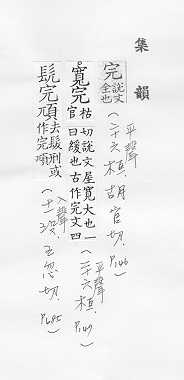 集韻
完 說文全也 (平聲 二十六桓,胡官切,P.146)
寬完 枯官切說文屋寬大也一曰緩也古作完文四 (平聲 二十六桓,P.147)
髡完頑 去髮刑或作完頑 (入聲 十一沒,五忽切,P.685)